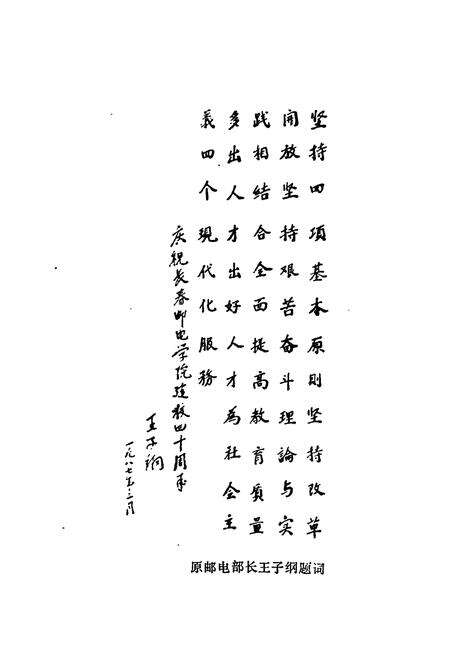 坚持四项基本原则坚持改革
開放坚持艰苦奋斗理論与实
践相结合全面提高教育质量
多出人才出好人才為社会主
義四个現代化服務
庆祝长春邮电学院建校四十周年
王子纲
一九八七年二月
原邮电部长王子纲题词